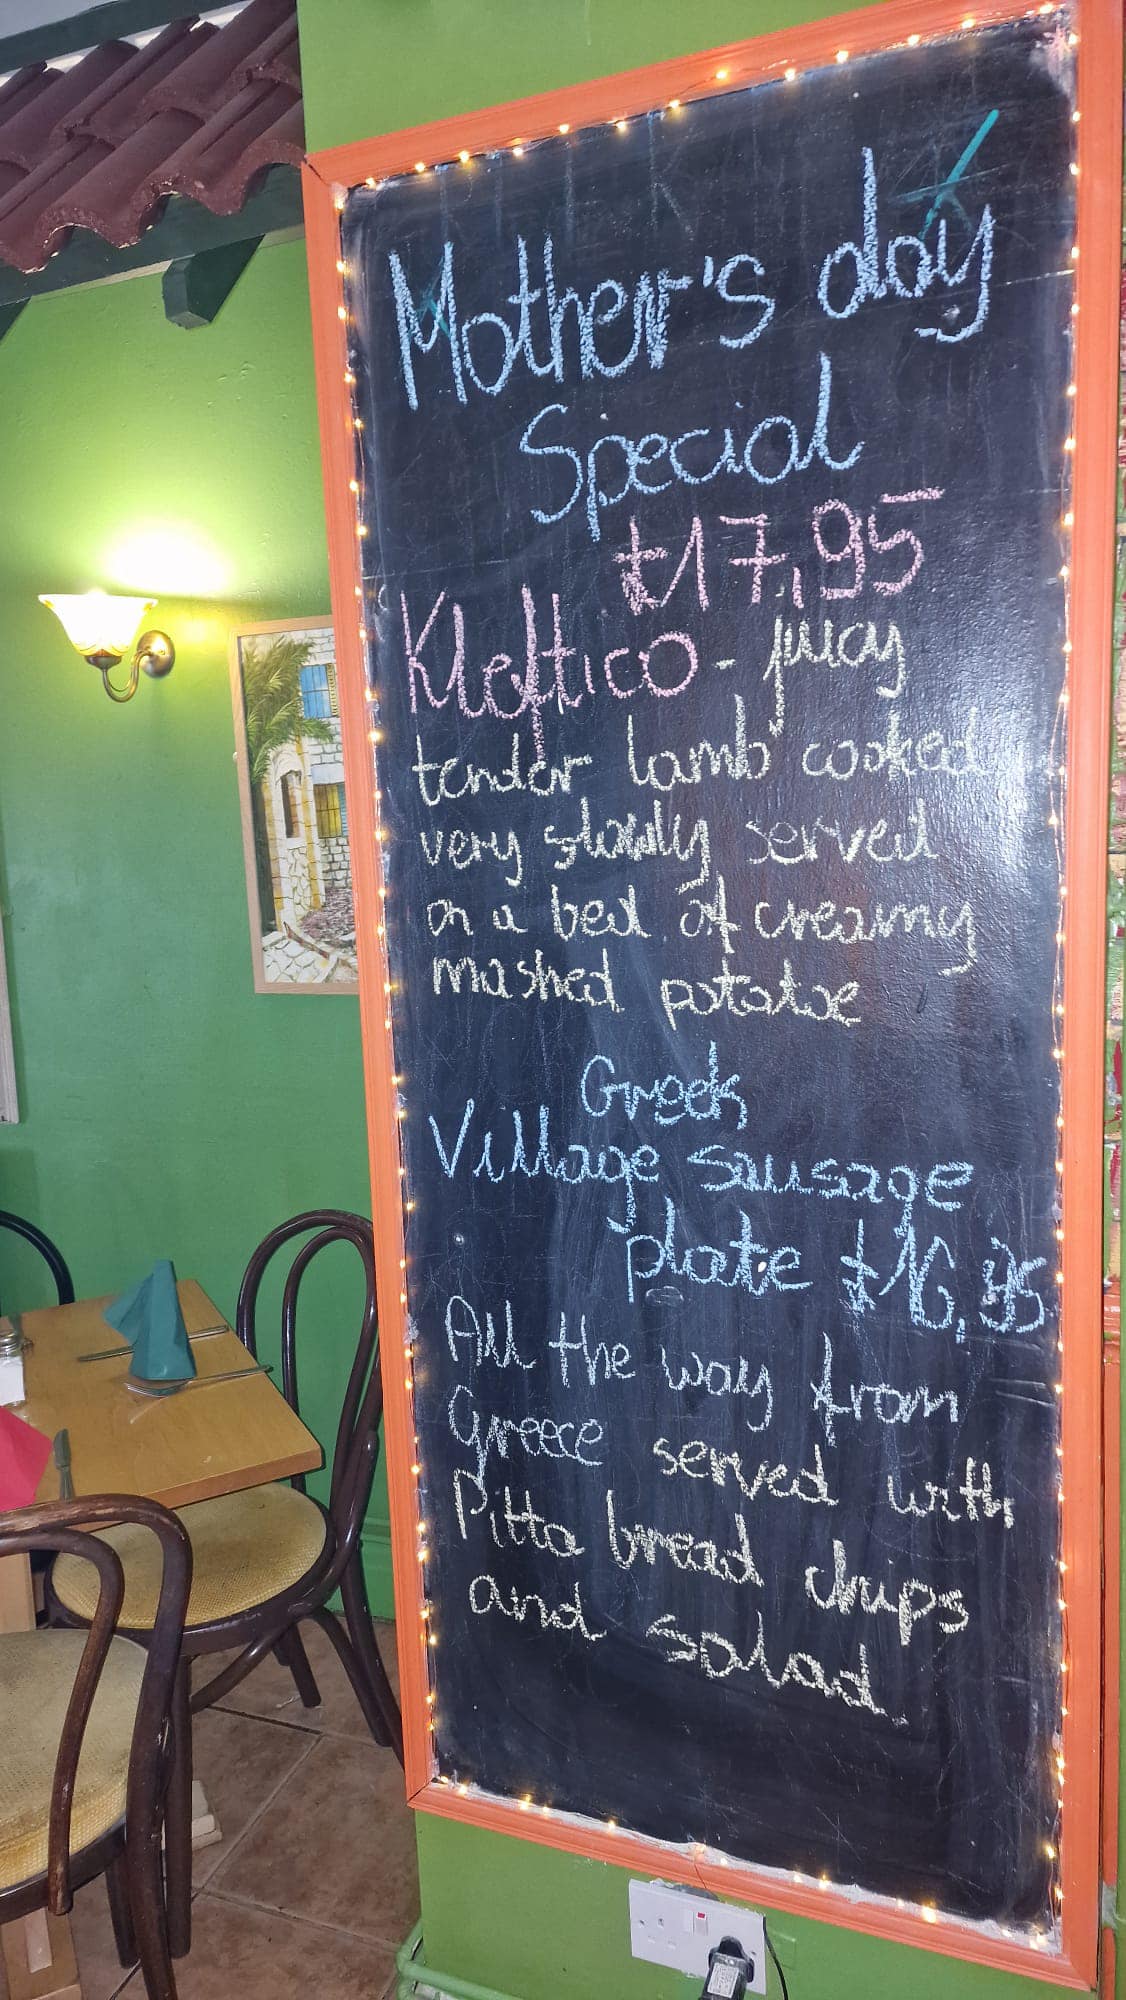 Mother's day
Special
£17,95
Kleftico - juicy
tender lamb cooked
very slowly served
on a bed of creamy
mashed potatoe
Greek
Village sausage
plate £16,95
All the way from
Greece served with
Pitta bread chips
and salad